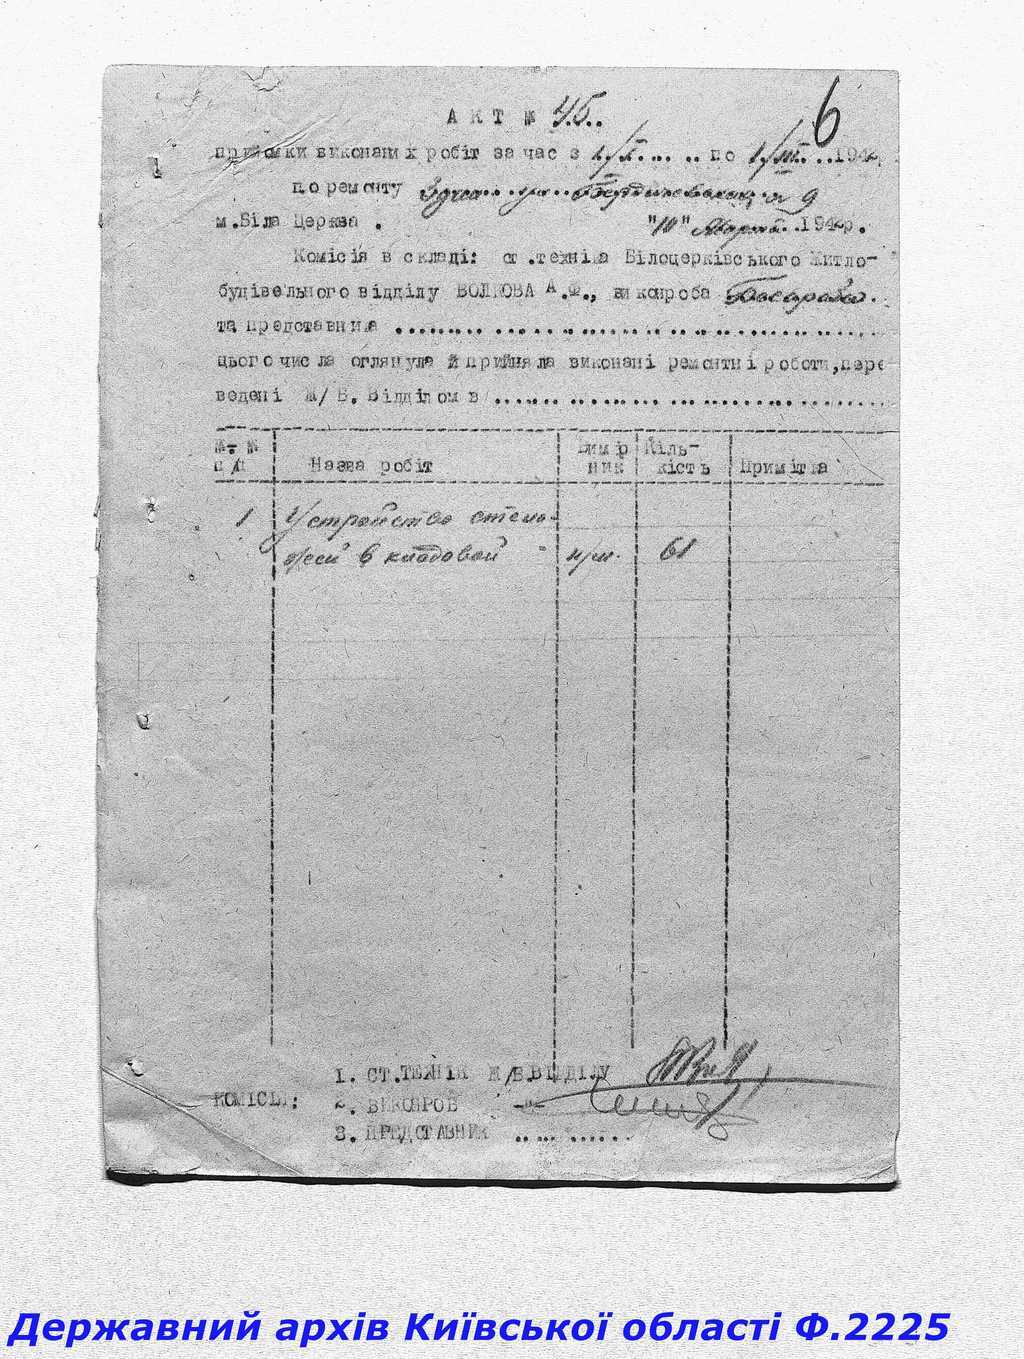 6
АКТ № 45..
прийомки виконаних робіт за час з 1/X... .. по 1/III. ..1942р
по ремонту
м.Біла Церква . "10" Марта..1942р.
Комісія в складі: ст.техніка Білоцерківського Житло-
будівельного відділу ВОЛКОВА А.Ф., виконроба
та представника ........ ... ..............................
цього числа оглянула й прийняла виконані ремонтні роботи,пере
ведені Ж/Б. Відділом в ....... ......... ... ................
№.№ п/п Назва робіт Вимірник Кіль-кість Примітка
1 Устройство стела-
жей в кладовой п/м. 61
КОМІСІЯ:
1. СТ.ТЕХНІК Ж/Б.ВІДДІЛУ
2. ВИКОНРОБ -"-
3. ПРЕДСТАВНИК ..... ......
Державний архів Київської області Ф.2225